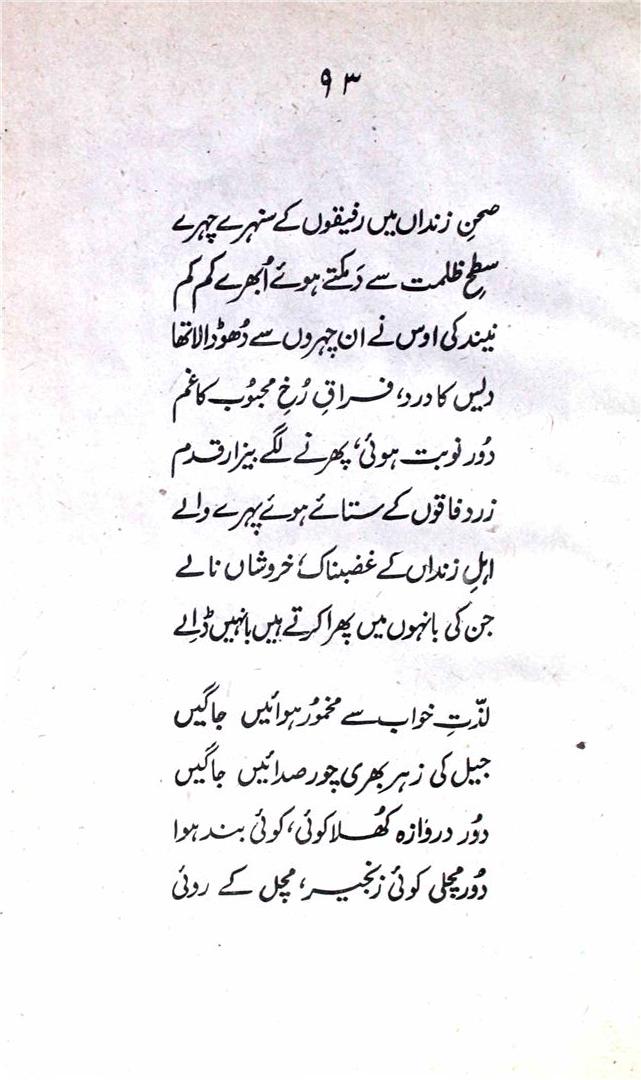 ۹۳
صحنِ زنداں میں رفیقوں کے سنہرے چہرے
سطحِ ظلمت سے دَمکتے ہوئے اُبھرے کم کم
نیند کی اوس نے ان چہروں سے دُھو ڈالا تھا
دیس کا درد، فراقِ رُخِ محبُوب کا غم
دُور نوبت ہوئی، پھرنے لگے بیزار قدم
زرد فاقوں کے ستائے ہوئے پہرے والے
اہلِ زنداں کے غضبناک، خروشاں نالے
جن کی بانہوں میں پھرا کرتے ہیں بانہیں ڈالے
لذّتِ خواب سے مخمُور ہوائیں جاگیں
جیل کی زہر بھری چور صدائیں جاگیں
دُور دروازہ کھُلا کوئی، کوئی بند ہوا
دُور مچلی کوئی زنجیر، مچل کے روئی